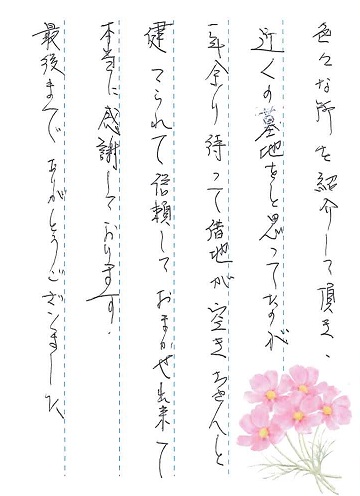 色々な所を紹介して頂き、
近くの墓地をと思ってたのが
一年余り待って借地が空きちゃんと
建てられて信頼しておまかせ出来て
本当に感謝しております。
最後までありがとうございました、